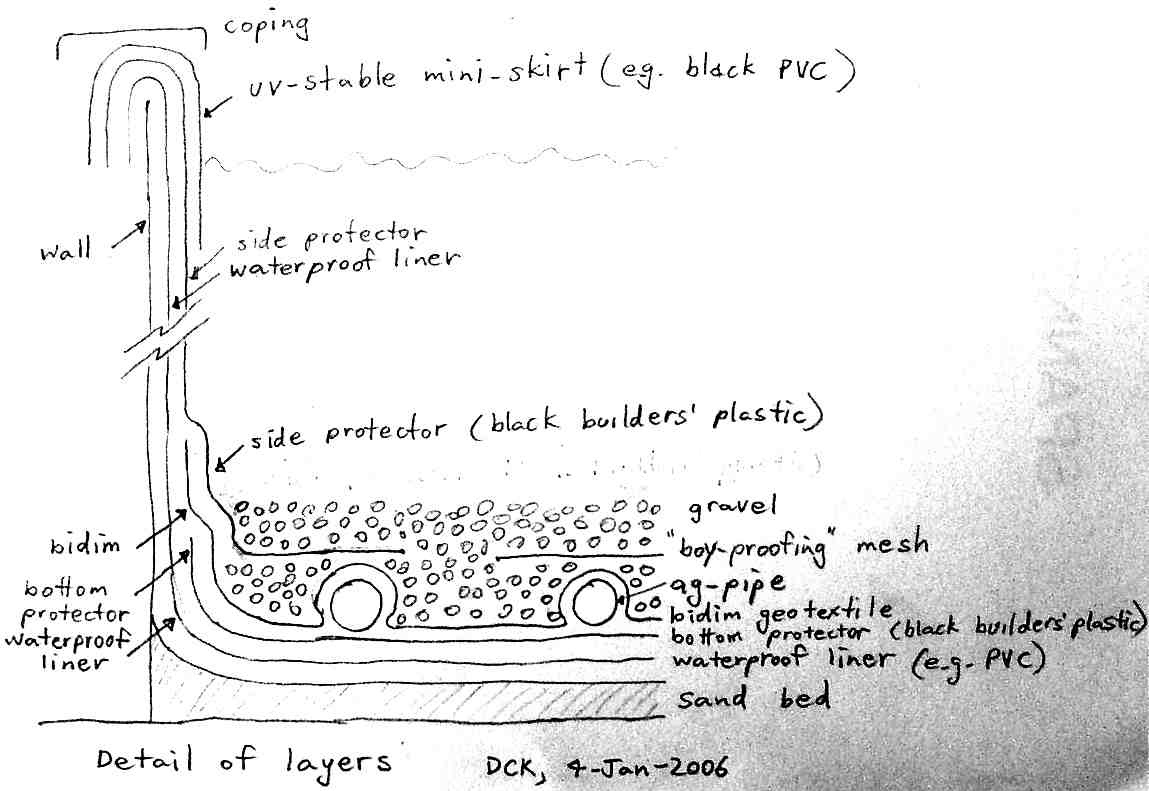 coping
uv-stable mini-skirt (eg. black PVC)
wall
side protector
waterproof liner
side protector (black builders' plastic)
gravel
bidim
"boy-proofing" mesh
bottom
protector
waterproof
liner
ag-pipe
bidim geotextile
bottom protector (black builders' plastic)
waterproof liner (e.g. PVC)
sand bed
Detail of layers
DCK, 4-Jan-2006